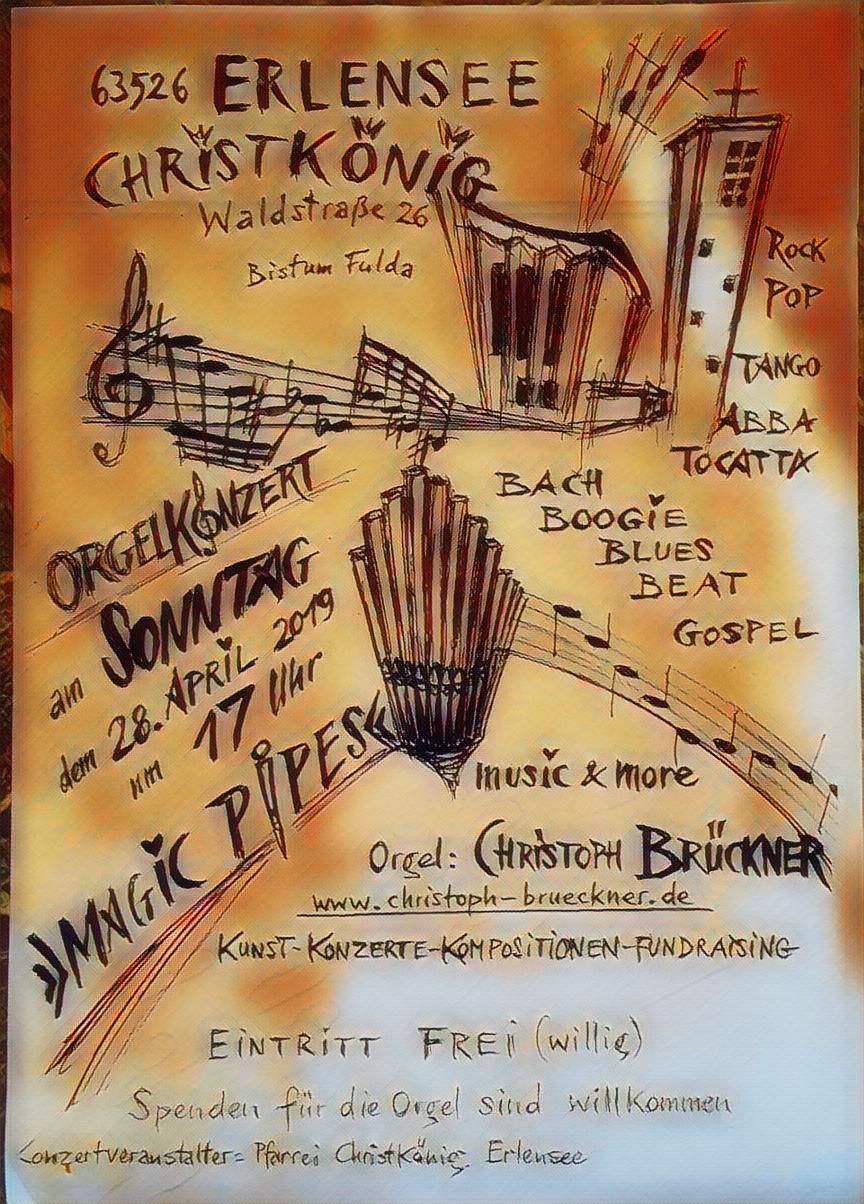 63526 ERLENSEE
CHRISTKÖNIG
Waldstraße 26
Bistum Fulda
ROCK
POP
TANGO
ABBA
TOCATTA
BACH
BOOGiE
BLUES
BEAT
GOSPEL
ORGELKONZERT
am SONNTAG
dem 28. APRiL 2019
um 17 Uhr
»MAGiC PiPES«
music & more
Orgel: CHRiSTOPH BRÜCKNER
www.christoph-brueckner.de
KUNST-KONZERTE-KOMPOSiTiONEN-FUNDRAiSiNG
EiNTRiTT FREi (willig)
Spenden für die Orgel sind willkommen
Konzertveranstalter: Pfarrei Christkönig, Erlensee